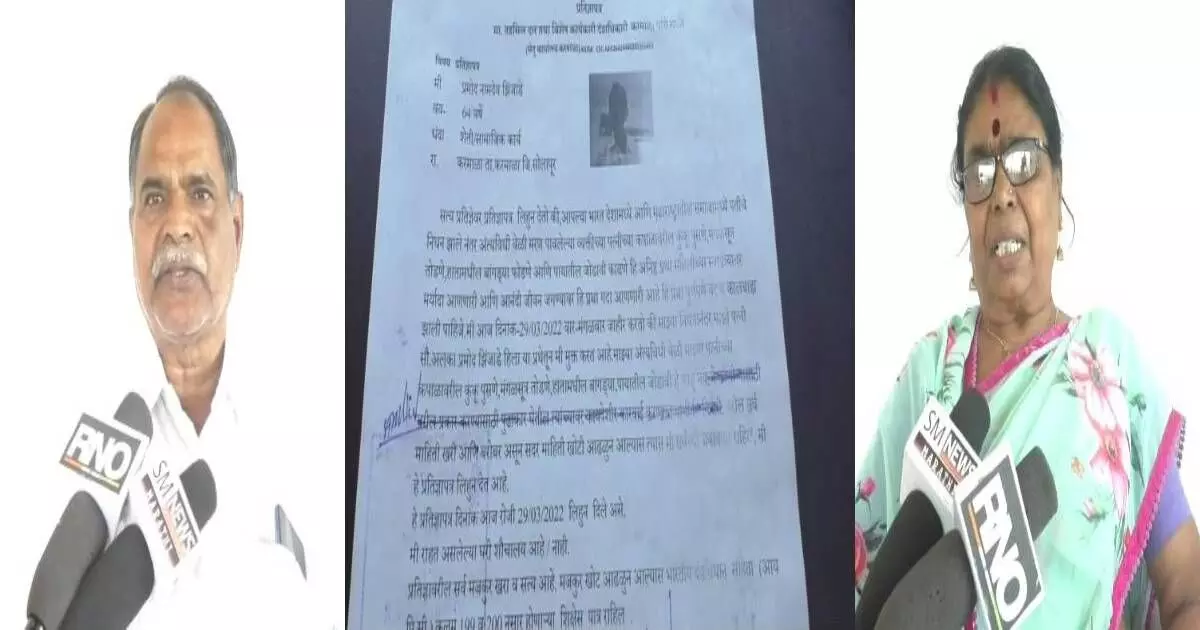 प्रतिज्ञापत्र
मा. तहसिल दार तथा विशेष कार्यकारी दंडाधिकारी
विषय प्रतिज्ञापत्र
मी प्रमोद नामदेव झिंजाडे
वय- 64 वर्षे
धंदा शेती/सामाजिक कार्य
रा. करमाळा ता.करमाळा जि.सोलापूर
सत्य प्रतिज्ञेवर प्रतिज्ञापत्र लिहुन देतो की,आपल्या भारत देशामध्ये आणि समाजामध्ये पतीचे
निधन झाले नंतर अंत्यविधी वेळी मरण पावलेल्या व्यक्तीच्या पत्नीच्या कपाळावरील कुंकू पुसणे,
तोडणे,हातामधील बांगड्या फोडणे आणि पायातील जोडावी काढणे हि अनिष्ट प्रथा
मर्यादा आणणारी आणि आनंदी जीवन जगण्यावर हि प्रथा गदा आणणारी आहे हि प्रथा कालबाह्य
झाली पाहिजे,मी आज दिनांक-29/03/2022 वार-मंगळवार जाहीर करतो की माझ्या पत्नी
सौ.अलका प्रमोद झिंजाडे हिला या प्रथेतून मी मुक्त करत आहे.माझ्या अंत्यविधी वेळी पत्नीच्या
कपाळावरील कुंकू पुसणे,मंगळसूत्र तोडणे,हातामधील बांगड्या,पायातील जोडावी
सर्व
माहिती खरी आणि बरोबर असून सदर माहिती खोटी आढळुन आल्यास त्यास मी मी
हे प्रतिज्ञापत्र लिहुन देत आहे.
हे प्रतिज्ञापत्र दिनांक आज रोजी 29/03/2022 लिहुन दिले असे.
मी राहत असलेल्या घरी शौचालय आहे / नाही.
प्रतिज्ञावरील सर्व मजकुर खरा व सत्य आहे. मजकुर खोट आढळुन आल्यास भारतीय दंडविधान संहिता (आय
पि.सी.) कलम 199 व 200 नुसार होणाऱ्या शिक्षेस पात्र राहिल
RNO
SM NEWS
MARATHI
SM NEWS
MARATHI
RNO